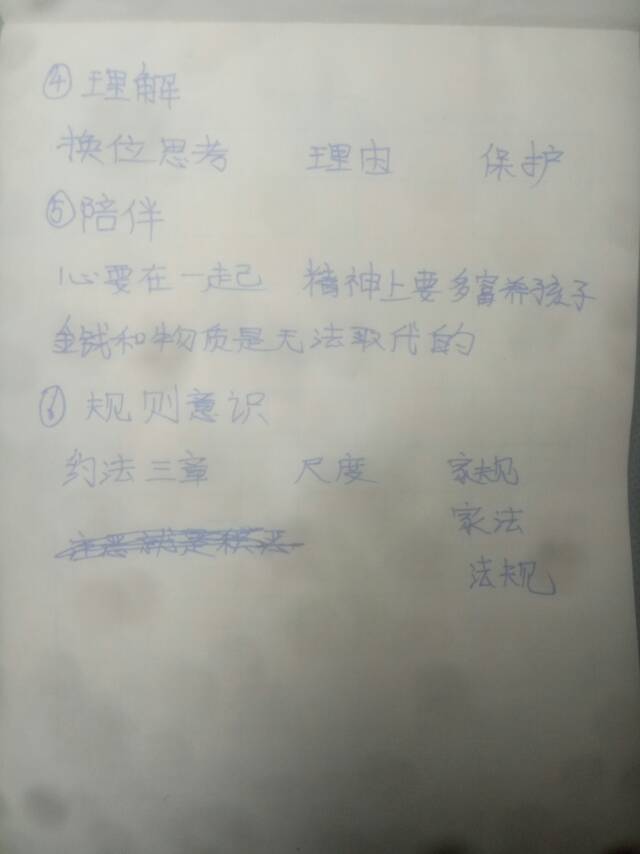 ④理解
换位思考 理因 保护
⑤陪伴
心要在一起 精神上要多富养孩子
金钱和物质是无法取代的
⑥规则意识
约法三章 尺度 家规
家法
法规